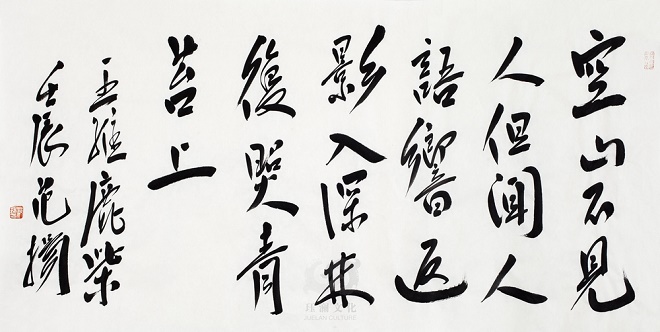 空山不見
人但聞人
語響返
影入深林
復照青
苔上
王維鹿柴
壬辰范
JUELAN CULTURE